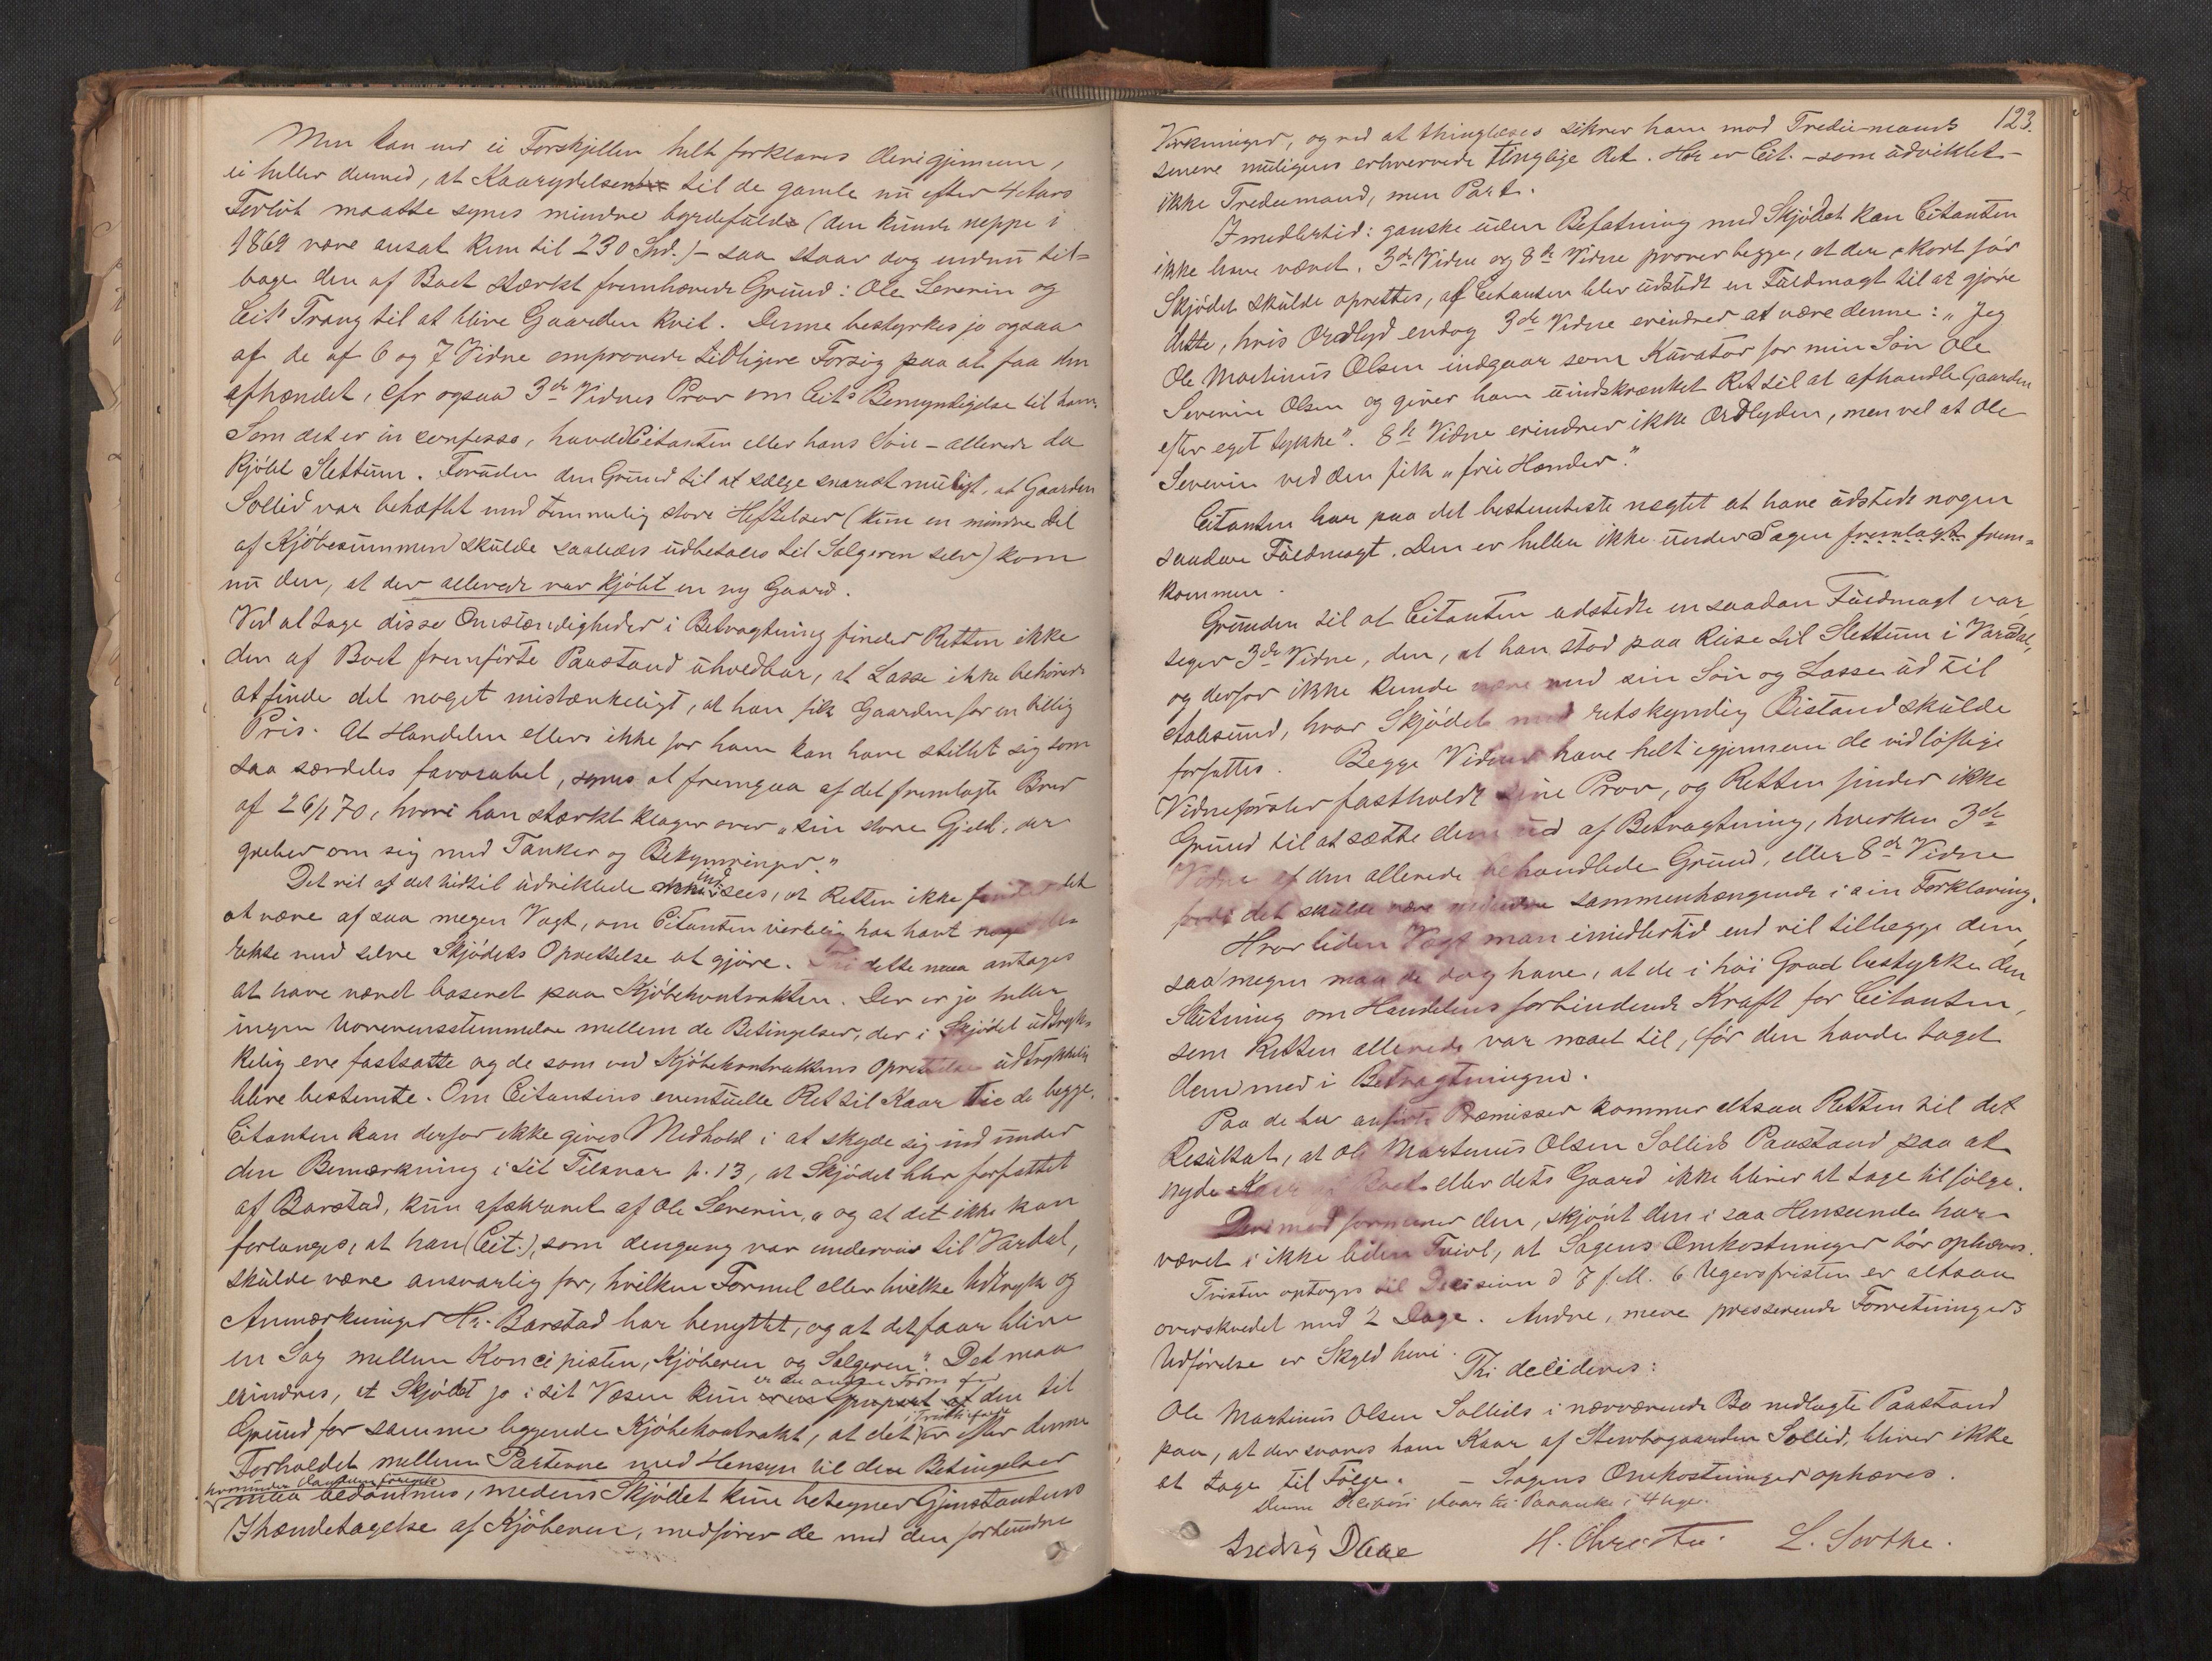 Men kan end ei Forskjellen helt forklares derigjennem,
ei heller dermed, at Kaarydelsen til de gamle nu efter 4 Aars
Forløb maatte synes mindre byrdefuld (den kunde neppe i
1869 være ansat kun til 230 Spd.) – saa staar dog endnu til=
bage den af Boet stærkt fremhævede Grund: Ole Severin og
Cits Trang til at blive Gaarden kvit. Denne bestyrkes jo ogsaa
af de af 6 og 7 Vidne omprovede tidligere Forsøg paa at faa den
afhændet, cfr ogsaa 3de Vidnes Prov om Cits Bemyndigelse til ham.
Som det er in confesso, havde Citanten eller hans Søn – allerede da
kjøbt Slettum. Foruden den Grund til at sælge snarest muligt, at Gaarden
Sollid var behæftet med temmelig store Heftelser (kun en mindre Del
af Kjøbesummen skulde saaledes udbetales til Sælgeren selv) kom
nu den, at der allerede var kjøbt en ny Gaard.
Ved at tage disse Omstændigheder i Betragtning finder Retten ikke
den af Boet fremførte Paastand uholdbar, at Lasse ikke behøvede
at finde det noget mistænkeligt, at han fik Gaarden for en billig
Pris. At Handelen ellers ikke for ham kan have stillet sig som
saa særdeles favorabel, synes at fremgaa af det fremlagte Brev
af 26/1 70, hvori han stærkt klager over „sin store Gjeld, der
greber om sig med Tanker og Bekymringer."
Det vil af det hidtil udviklede indsees, at Retten ikke finder det
at være af saa megen Vægt, om Citanten virkelig har havt noget
rekte med selve Skjødets Oprettelse at gjøre. Thi dette maa antages
at have været baseret paa Kjøbekontrakten. Der er jo heller
ingen Uoverensstemmelse mellem de Betingelser, der i Skjødet udtryk=
kelig ere fastsatte og de som ved Kjøbekontraktens Oprettelse udtrykkelig
bleve bestemte. Om Citantens eventuelle Ret til Kaar tie de begge.
Citanten kan derfor ikke gives Medhold i at skyde sig ind under
den Bemærkning i sit Tilsvar p. 13, at Skjødet blev forfattet
af Barstad, kun afskrevet af Ole Severin, „og at det ikke kan
forlanges, at han (Cit.), som dengang var underveis til Vardal,
skulde være ansvarlig for, hvilken Formel eller hvilke Udtryk og
Anmærkninger Hr. Barstad har benyttet, og at det faar blive
en Sag mellem Koncipisten, Kjøberen og Sælgeren". Det maa
erindres, at Skjødet jo i sit Væsen kun er en anden Form for den til
Grund for samme liggende Kjøbekontrakt, at det er efter denne
Forholdet mellem Parterne med Hensyn til den Betingelser
hvorunder Handelen foregik
maa bedømmes, medens Skjødet kun betegner Gjenstandens
Ihændetagelse af Kjøberen, medfører de med den forbundne
123.
Virkninger, og ved at thinglæses sikrer ham mod Trediemands
senere muligens erhvervede tinglige Ret. Her er Cit. – som udviklet –
ikke Trediemand, men Part.
Imedlertid: ganske uden Befatning med Skjødet kan Citanten
ikke have været. 3de Vidne og 8de Vidne prover begge, at der, kort før
Skjødet skulde oprettes, af Citanten blev udstedt en Fuldmagt til at gjøre
dette, hvis Ordlyd endog 3de Vidne erindrer at være denne: „Jeg
Ole Martinus Olsen indgaar som Kurator for min Søn Ole
Severin Olsen og giver ham uindskrænket Ret til at afhandle Gaarden
efter eget Tykke". 8de Vidne erindrer ikke Ordlyden, men vel at Ole
Severin ved den fik „frie Hænder."
Citanten har paa det bestemteste negtet at have udstedt nogen
saadan Fuldmagt. Den er heller ikke under Sagen fremlagt frem=
kommen.
Grunden til at Citanten udstedte en saadan Fuldmagt var,
siger 3de Vidne, den, at han stod paa Reise til Slettum i Vardal,
og derfor ikke kunde være med sin Søn og Lasse ud til
Aalesund, hvor Skjødet med retskyndig Bistand skulde
forfattes. Begge Vidner have helt igjennem de vidløftige
Vidneførsler fastholdt sine Prov, og Retten finder ikke
Grund til at sætte dem ud af Betragtning, hverken 3de
Vidne af den allerede behandlede Grund, eller 8de Vidne
fordi det skulde være mindre sammenhængende i sin Forklaring.
Hvor liden Vægt man imidlertid end vil tillægge dem,
saa megen maa de dog have, at de i høi Grad bestyrke den
Slutning om Handelens forbindende Kraft for Citanten,
som Retten allerede var naaet til, før den havde taget
dem med i Betragtningen.
Paa de her anførte Præmisser kommer altsaa Retten til det
Resultat, at Ole Martinus Olsen Sollids Paastand paa at
nyde Kaar af Boet eller dets Gaard ikke bliver at tage tilfølge.
Derimod formener den, skjønt den i saa Henseende har
været i ikke liden Tvivl, at Sagens Omkostninger bør ophæves.
Tvisten optoges til Decision d 7 f. M. 6 Ugersfristen er altsaa
overskredet med 2 Dage. Andre, mere presserende Forretningers
Udførelse er Skyld heri.
Thi decideres:
Ole Martinus Olsen Sollids i nærværende Bo nedlagte Paastand
paa, at der svares ham Kaar af Stervbogaarden Sollid, bliver ikke
at tage til Følge. – Sagens Omkostninger ophæves.
Denne Decision staar til Paaanke i 4 Uger.
Ludvig Daae H. Christie. L. Sorthe.